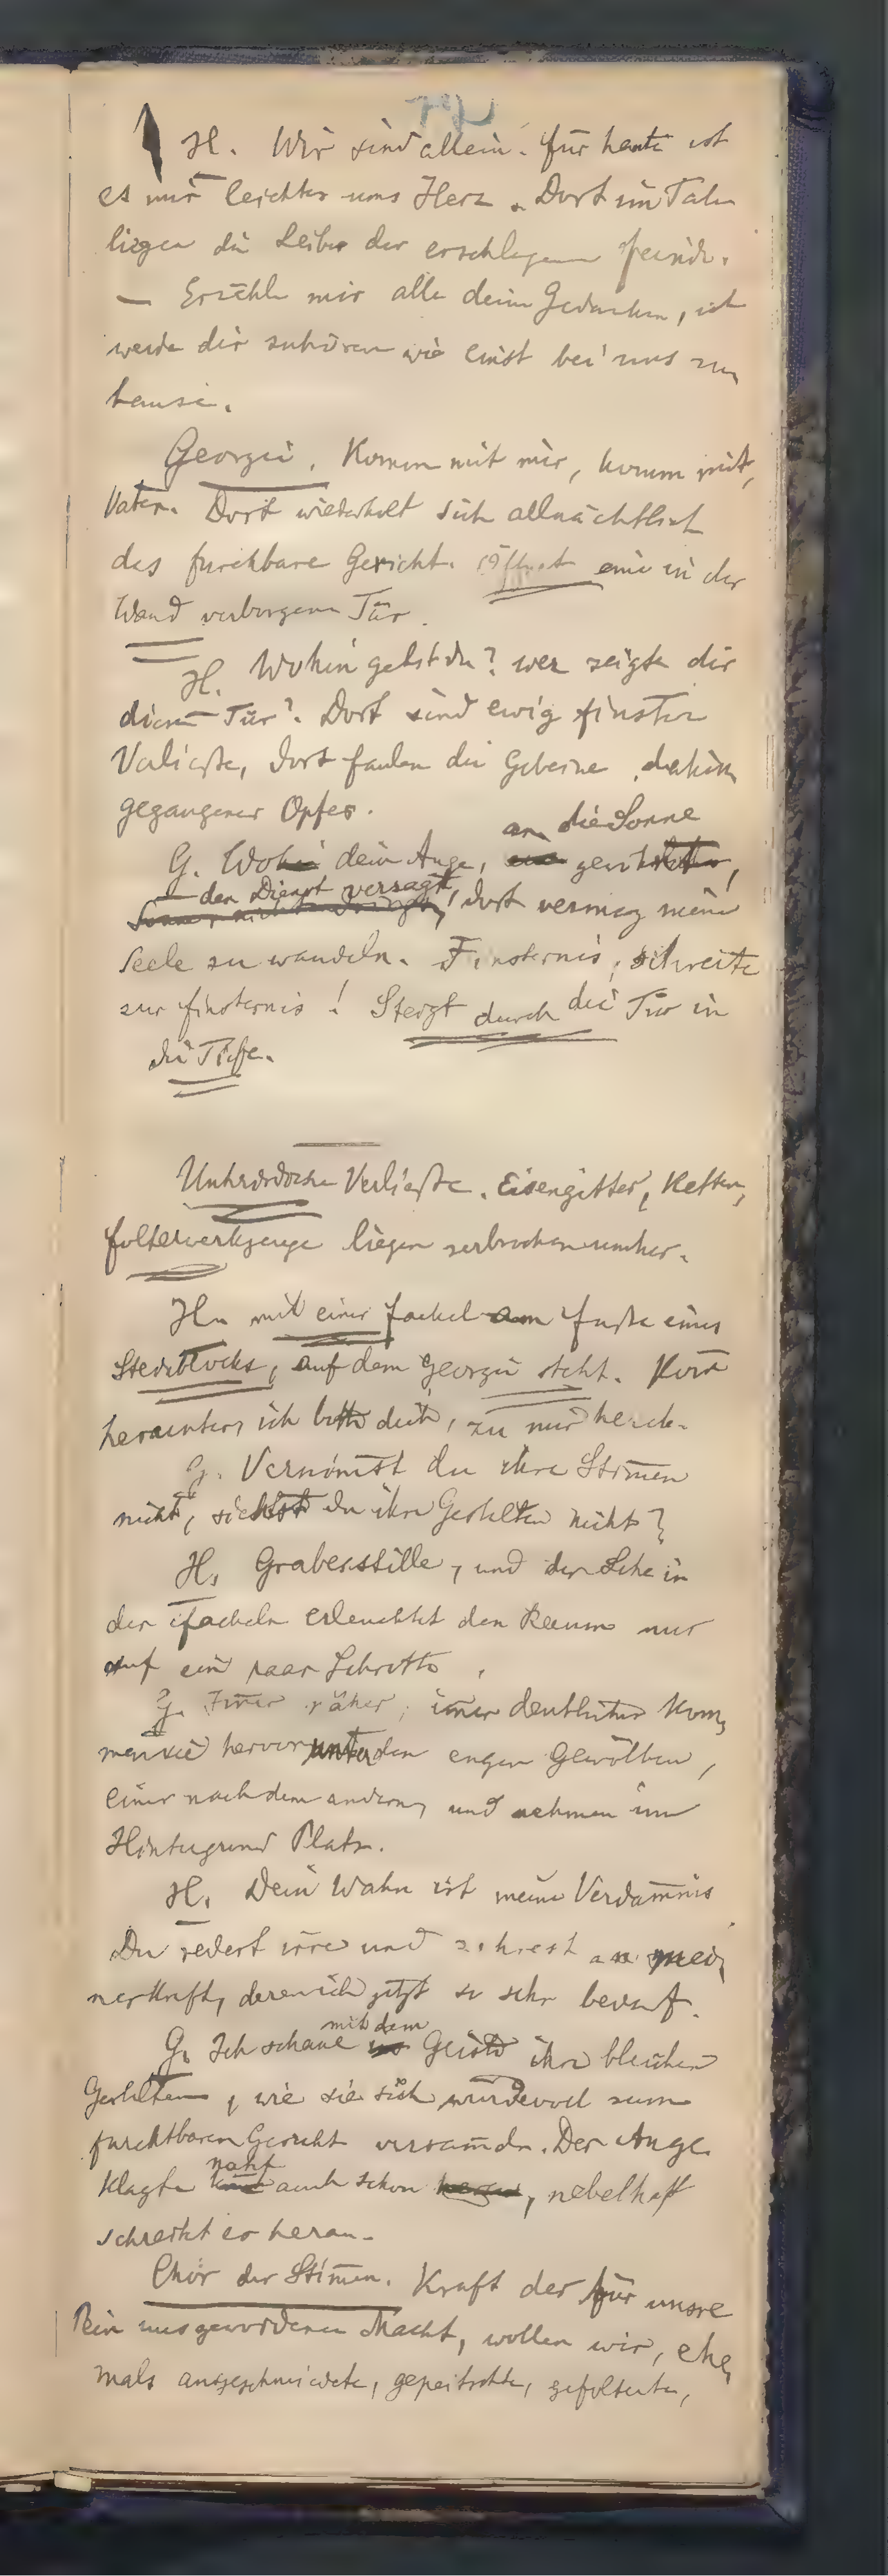 H. Wir sind allein. für heute ist
es mir leichter ums Herz. Dort im Tale
liegen die Leiber der erschlagenen feinde.
— Erzähle mir alle deine Gedanken, ich
werde dir zuhören wie einst bei uns zu
hause.
Georgii. Komm mit mir, komm mit,
Vater. Dort wiederholt sich allnächtlich
das furchtbare Gericht. öffnet eine in der
Wand verborgene Tür.
H. Wohin gehst du? wer zeigte dir
diese Tür? Dort sind ewig finstere
Verließe, dort faulen die Gebeine dahin
gegangener Opfer.
an die Sonne
G. Wo dein Auge, gewöhnt,
den Dienst versagt,
dort vermag meine
Seele zu wandeln. Finsternis, schreite
zur finsternis! Steigt durch die Tür in
die Tiefe.
Unterirdische Verließe. Eisengitter, Ketten,
folterwerkzeuge liegen zerbrochen umher.
H. mit einer fackel am fuße eines
Steinblocks, auf dem Georgii steht. Kom̄
herunter, ich bitte dich, zu mir herab.
G. Vernim̄st du ihre Stim̄en
nicht, siehst du ihre Gestalten nicht?
H. Grabesstille, und der Schein
der fackeln erleuchtet den Raum nur
auf ein paar Schritte.
G. Im̄er näher, im̄er deutlicher kom
men sie hervor unter den engen Gewölben,
einer nach dem andern, und nehmen im
Hintergrund Platz.
H. Dein Wahn ist meine Verdam̄nis
Du redest irre und zehrest an mei
ner Kraft, deren ich jetzt so sehr bedarf.
mit dem
G. Ich schaue Geiste ihre bleichen
Gestalten, wie sie sich würdevoll zum
furchtbaren Gericht versam̄eln. Der Ange
naht
klagte auch schon, nebelhaft
schreitet er heran.
Chor der Stim̄en. Kraft der für unsre
Pein uns gewordenen Macht, wollen wir, ehe
mals angeschmiedete, gepeitschte, gefolterte,